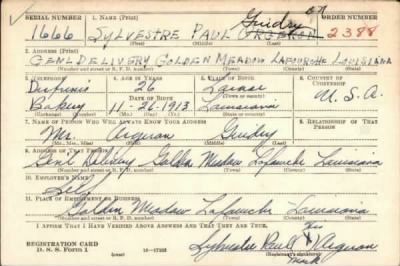 SERIAL NUMBER 1. NAME (Print) ORDER NUMBER
Guidry
1666 SYLVESTRE PAUL 2388
(First) (Middle) (Last)
2. ADDRESS (Print)
GENL DELIVERY GOLDEN MEADOW LAFOURCHE LOUISIANA
(Number and street or R. F. D. number) (Town) (County) (State)
3. TELEPHONE 4. AGE IN YEARS 5. PLACE OF BIRTH 6. COUNTRY OF CITIZENSHIP
Dufrenis 26 U.S.A.
DATE OF BIRTH
Bakery 11-26-1913 Louisiana
(Exchange) (Number) (Mo.) (Day) (Yr.) (State or country)
7. NAME OF PERSON WHO WILL ALWAYS KNOW YOUR ADDRESS 8. RELATIONSHIP OF THAT PERSON
Guidry
(Mr., Mrs., Miss) (First) (Middle) (Last)
9. ADDRESS OF THAT PERSON
Genl Delivery Golden Meadow Lafourche Louisiana
(Number and street or R. F. D. number) (Town) (County) (State)
10. EMPLOYER'S NAME
Self
11. PLACE OF EMPLOYMENT OR BUSINESS
Golden Meadow Lafourche Louisiana
(Number and street or R. F. D. number) (Town) (County) (State)
I AFFIRM THAT I HAVE VERIFIED ABOVE ANSWERS AND THAT THEY ARE TRUE.
his
REGISTRATION CARD Sylvestre Paul X
D. S. S. Form 1 (over) (Registrant's signature)
mark